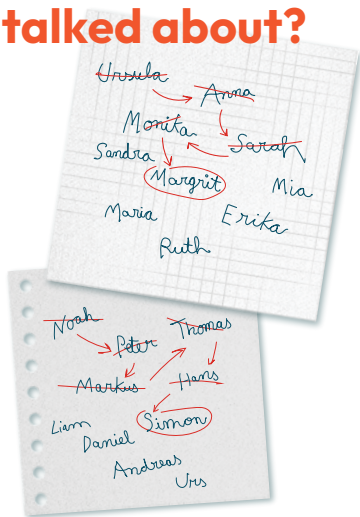 talked about?
Ursula
Anna
Monika
Sarah
Sandra
Margrit
Mia
Maria
Erika
Ruth
Noah
Thomas
Peter
Markus
Hans
Liam
Simon
Daniel
Andreas
Urs